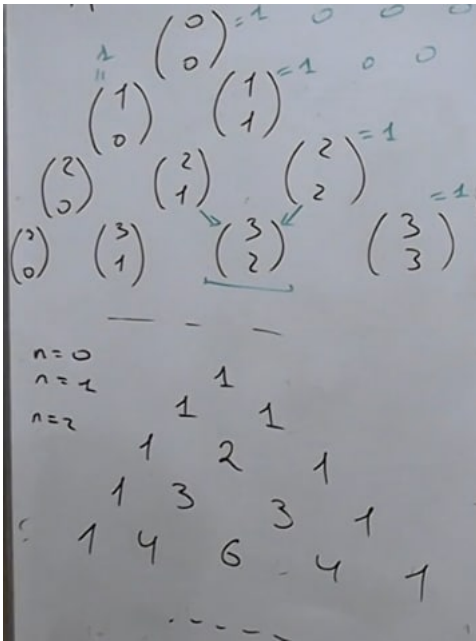 (0 0) = 1 0 0 0
1
=
(1 0) (1 1) = 1 0 0
(2 0) (2 1) (2 2) = 1
(3 0) (3 1) (3 2) (3 3) = 1
n=0
1
n=1
1 1
n=2
1 2 1
1 3 3 1
1 4 6 4 1